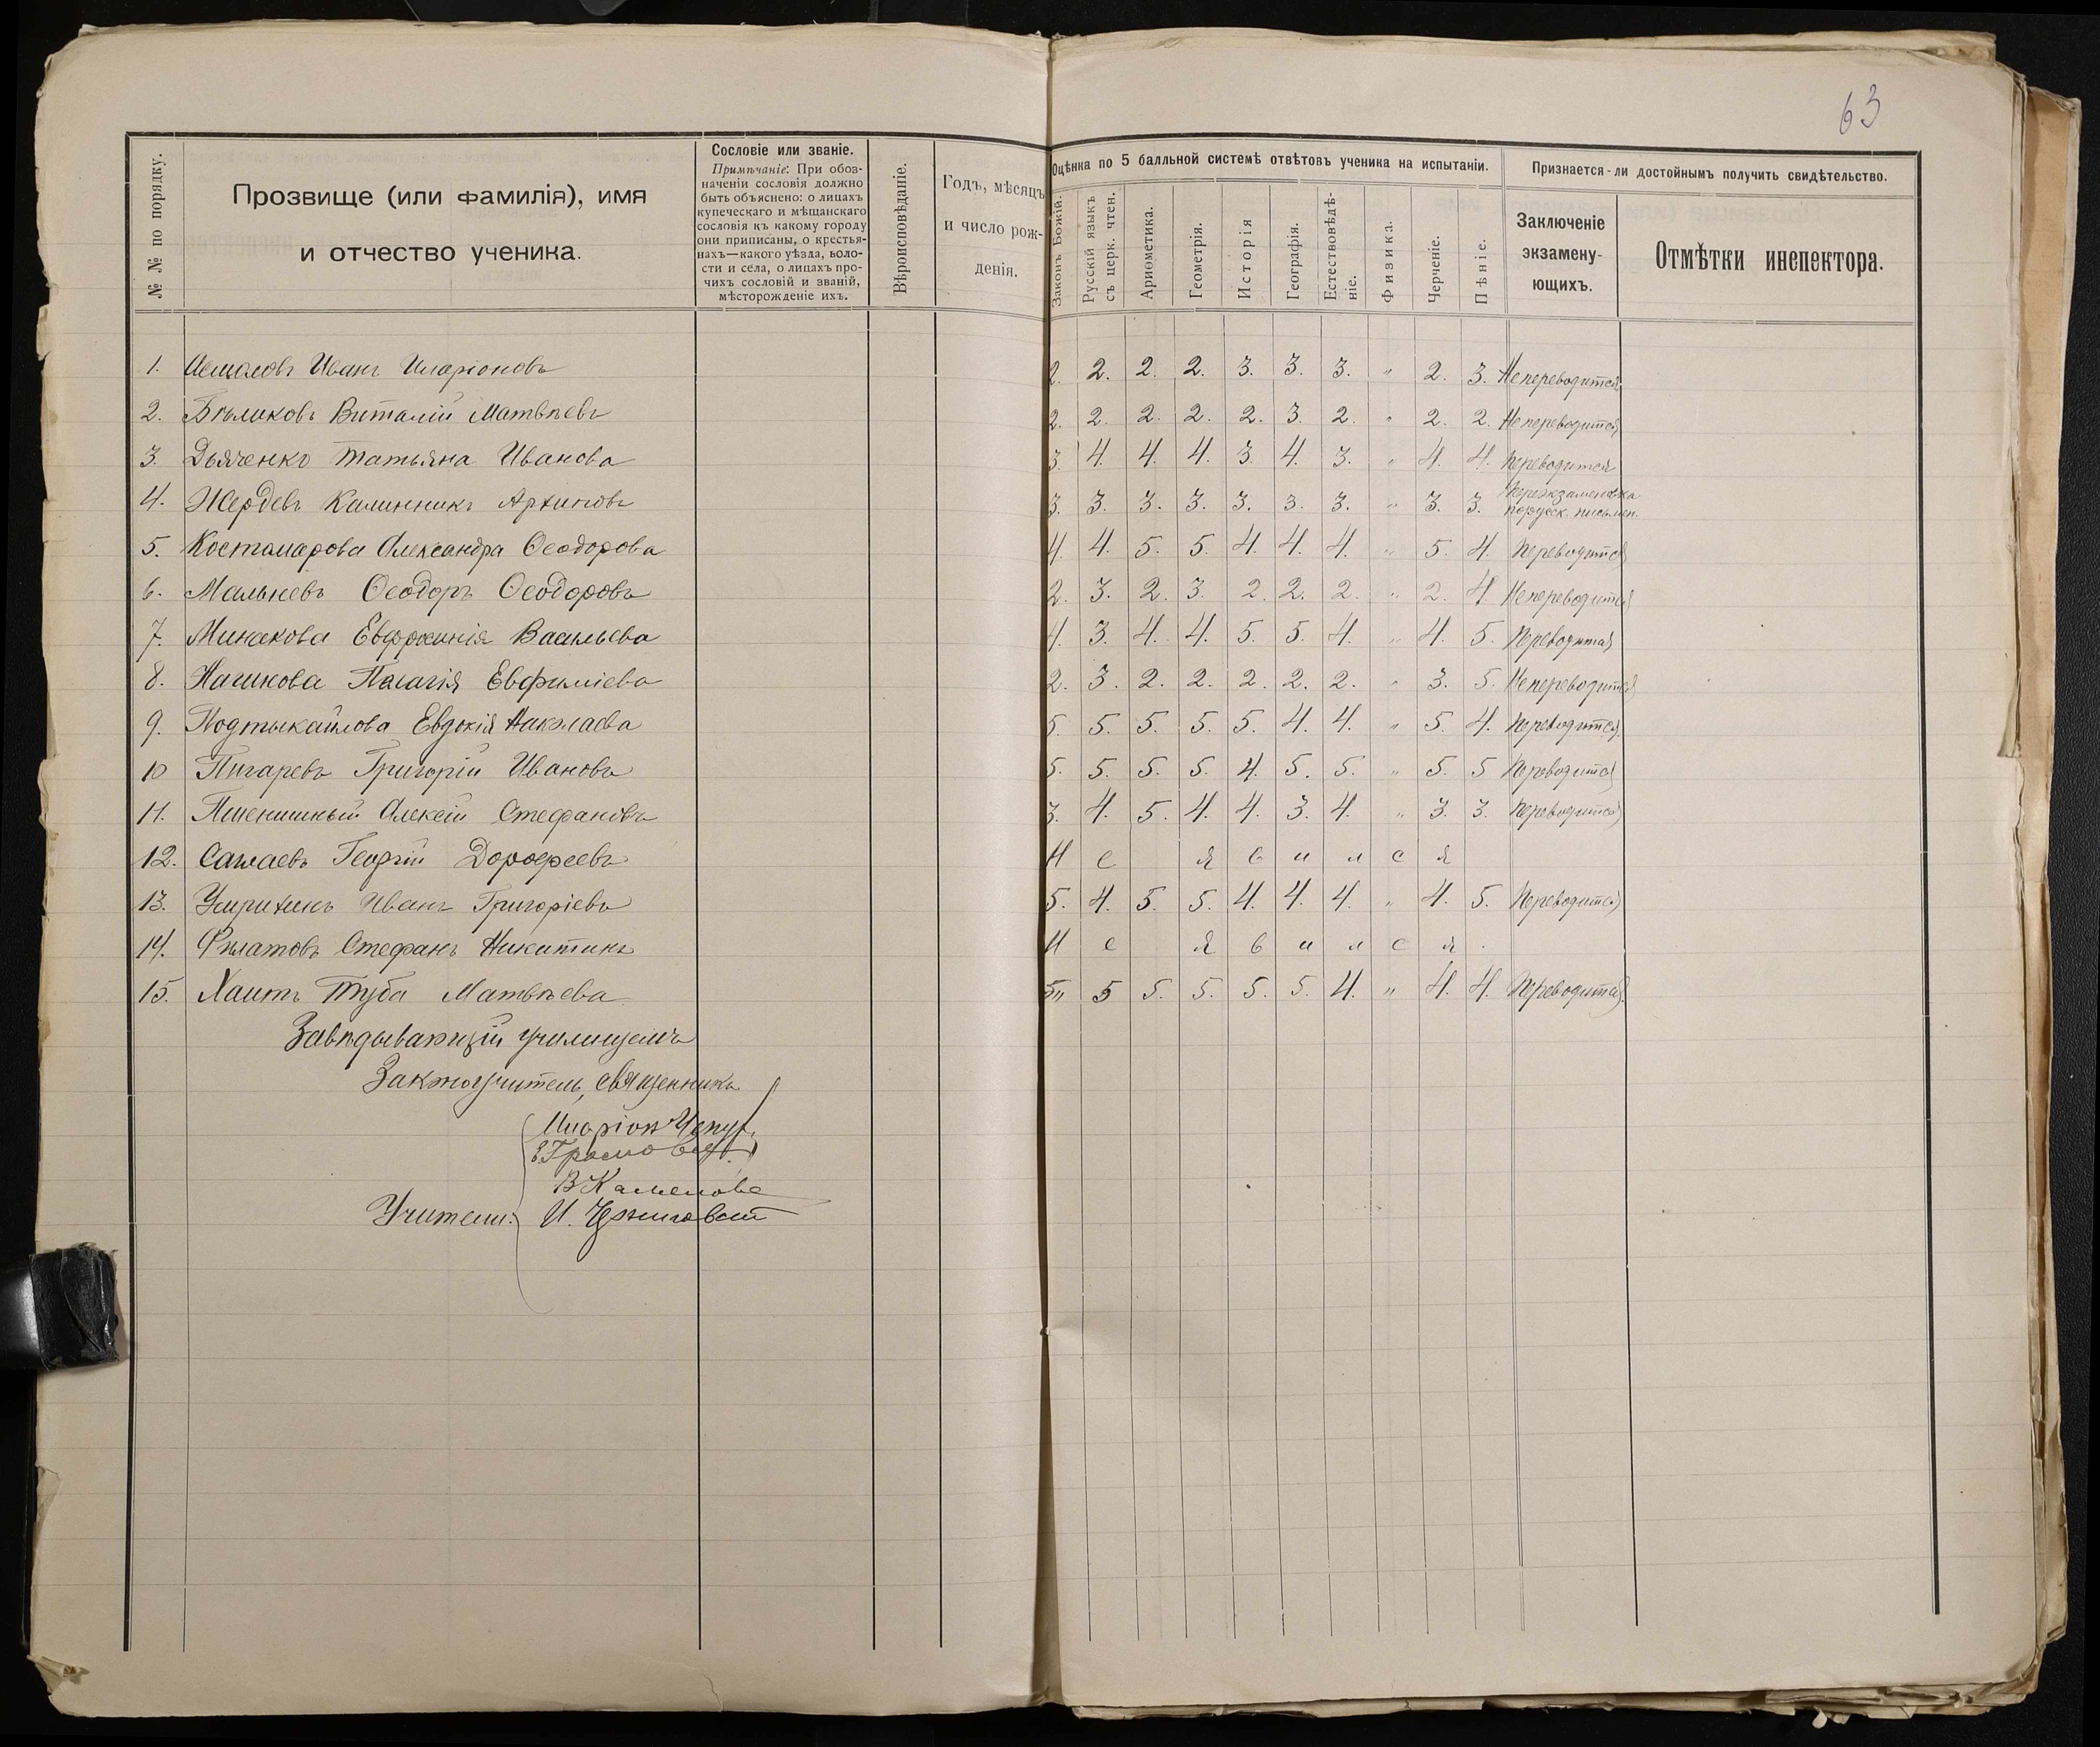 63
№ № по порядку.
Прозвище (или фамилія), имя
и отчество ученика.
Сословіе или званіе.
Примѣчаніе: При обоз-
наченіи сословія должно
быть объяснено: о лицахъ
купеческаго и мѣщанскаго
сословія къ какому городу
они приписаны, о крестья-
нахъ—какого уѣзда, воло-
сти и села, о лицахъ про-
чихъ сословій и званій,
мѣсторожденіе ихъ.
Вѣроисповѣданіе.
Годъ, мѣсяцъ
и число рож-
денія.
Оцѣнка по 5 балльной системѣ отвѣтовъ ученика на испытаніи.
Законъ Божій.
Русскій языкъ
съ церк. чтен.
Ариѳметика.
Геометрія.
Исторія
Географія.
Естествовѣдѣ-
ніе.
Физика.
Черченіе.
Пѣніе.
Признается-ли достойнымъ получить свидѣтельство.
Заключеніе
экзамену-
ющихъ.
Отмѣтки инспектора.
1. Иванъ Иларіоновъ 2. 2. 2. 2. 3. 3. 3. „ 2. 3. Не переводится
2. Бѣликовъ Виталій Матвѣевъ 2. 2. 2. 2. 2. 3. 2. „ 2. 2. Не переводится
3. Дьяченко Татьяна Иванова 3. 4. 4. 4. 3. 4. 3. „ 4. 4. Переводится
4. Жердевъ Калинникъ Архиповъ 3. 3. 3. 3. 3. 3. 3. „ 3. 3. Переэкзаменовка
по русск. письмен.
5. Костомарова Александра Ѳеодорова 4. 4. 5. 5. 4. 4. 4. „ 5. 4. Переводится
6. Мальневъ Ѳеодоръ Ѳеодоровъ 2. 3. 2. 3. 2. 2. 2. „ 2. 4. Не переводится
7. Минакова Евфросинія Васильева 4. 3. 4. 4. 5. 5. 4. „ 4. 5. Переводится
8. Нагикова Пелагія Евфиміева 2. 3. 2. 2. 2. 2. 2. „ 3. 5. Не переводится
9. Подтыкайлова Евдокія Николаева 5. 5. 5. 5. 5. 4. 4. „ 5. 4. Переводится
10 Пигаревъ Григорій Ивановъ 5. 5. 5. 5. 4. 5. 5. „ 5. 5 Переводится
11. Пшеничный Алексій Стефановъ 3. 4. 5. 4. 4. 3. 4. „ 3. 3. Переводится
12. Сажаевъ Георгій Дороѳеевъ Не явился
13. Усрихинъ Иванъ Григоріевъ 5. 4. 5. 5. 4. 4. 4. „ 4. 5. Переводится
14. Филатовъ Стефанъ Никитинъ Не явился.
15. Хаитъ Туба Матвѣева 5„ 5 5. 5. 5. 5. 4. „ 4. 4. Переводится.
Завѣдывающій училищемъ
Законоучитель, священникъ
Иларіонъ
В Каменова
Учители: И. Черниговскій